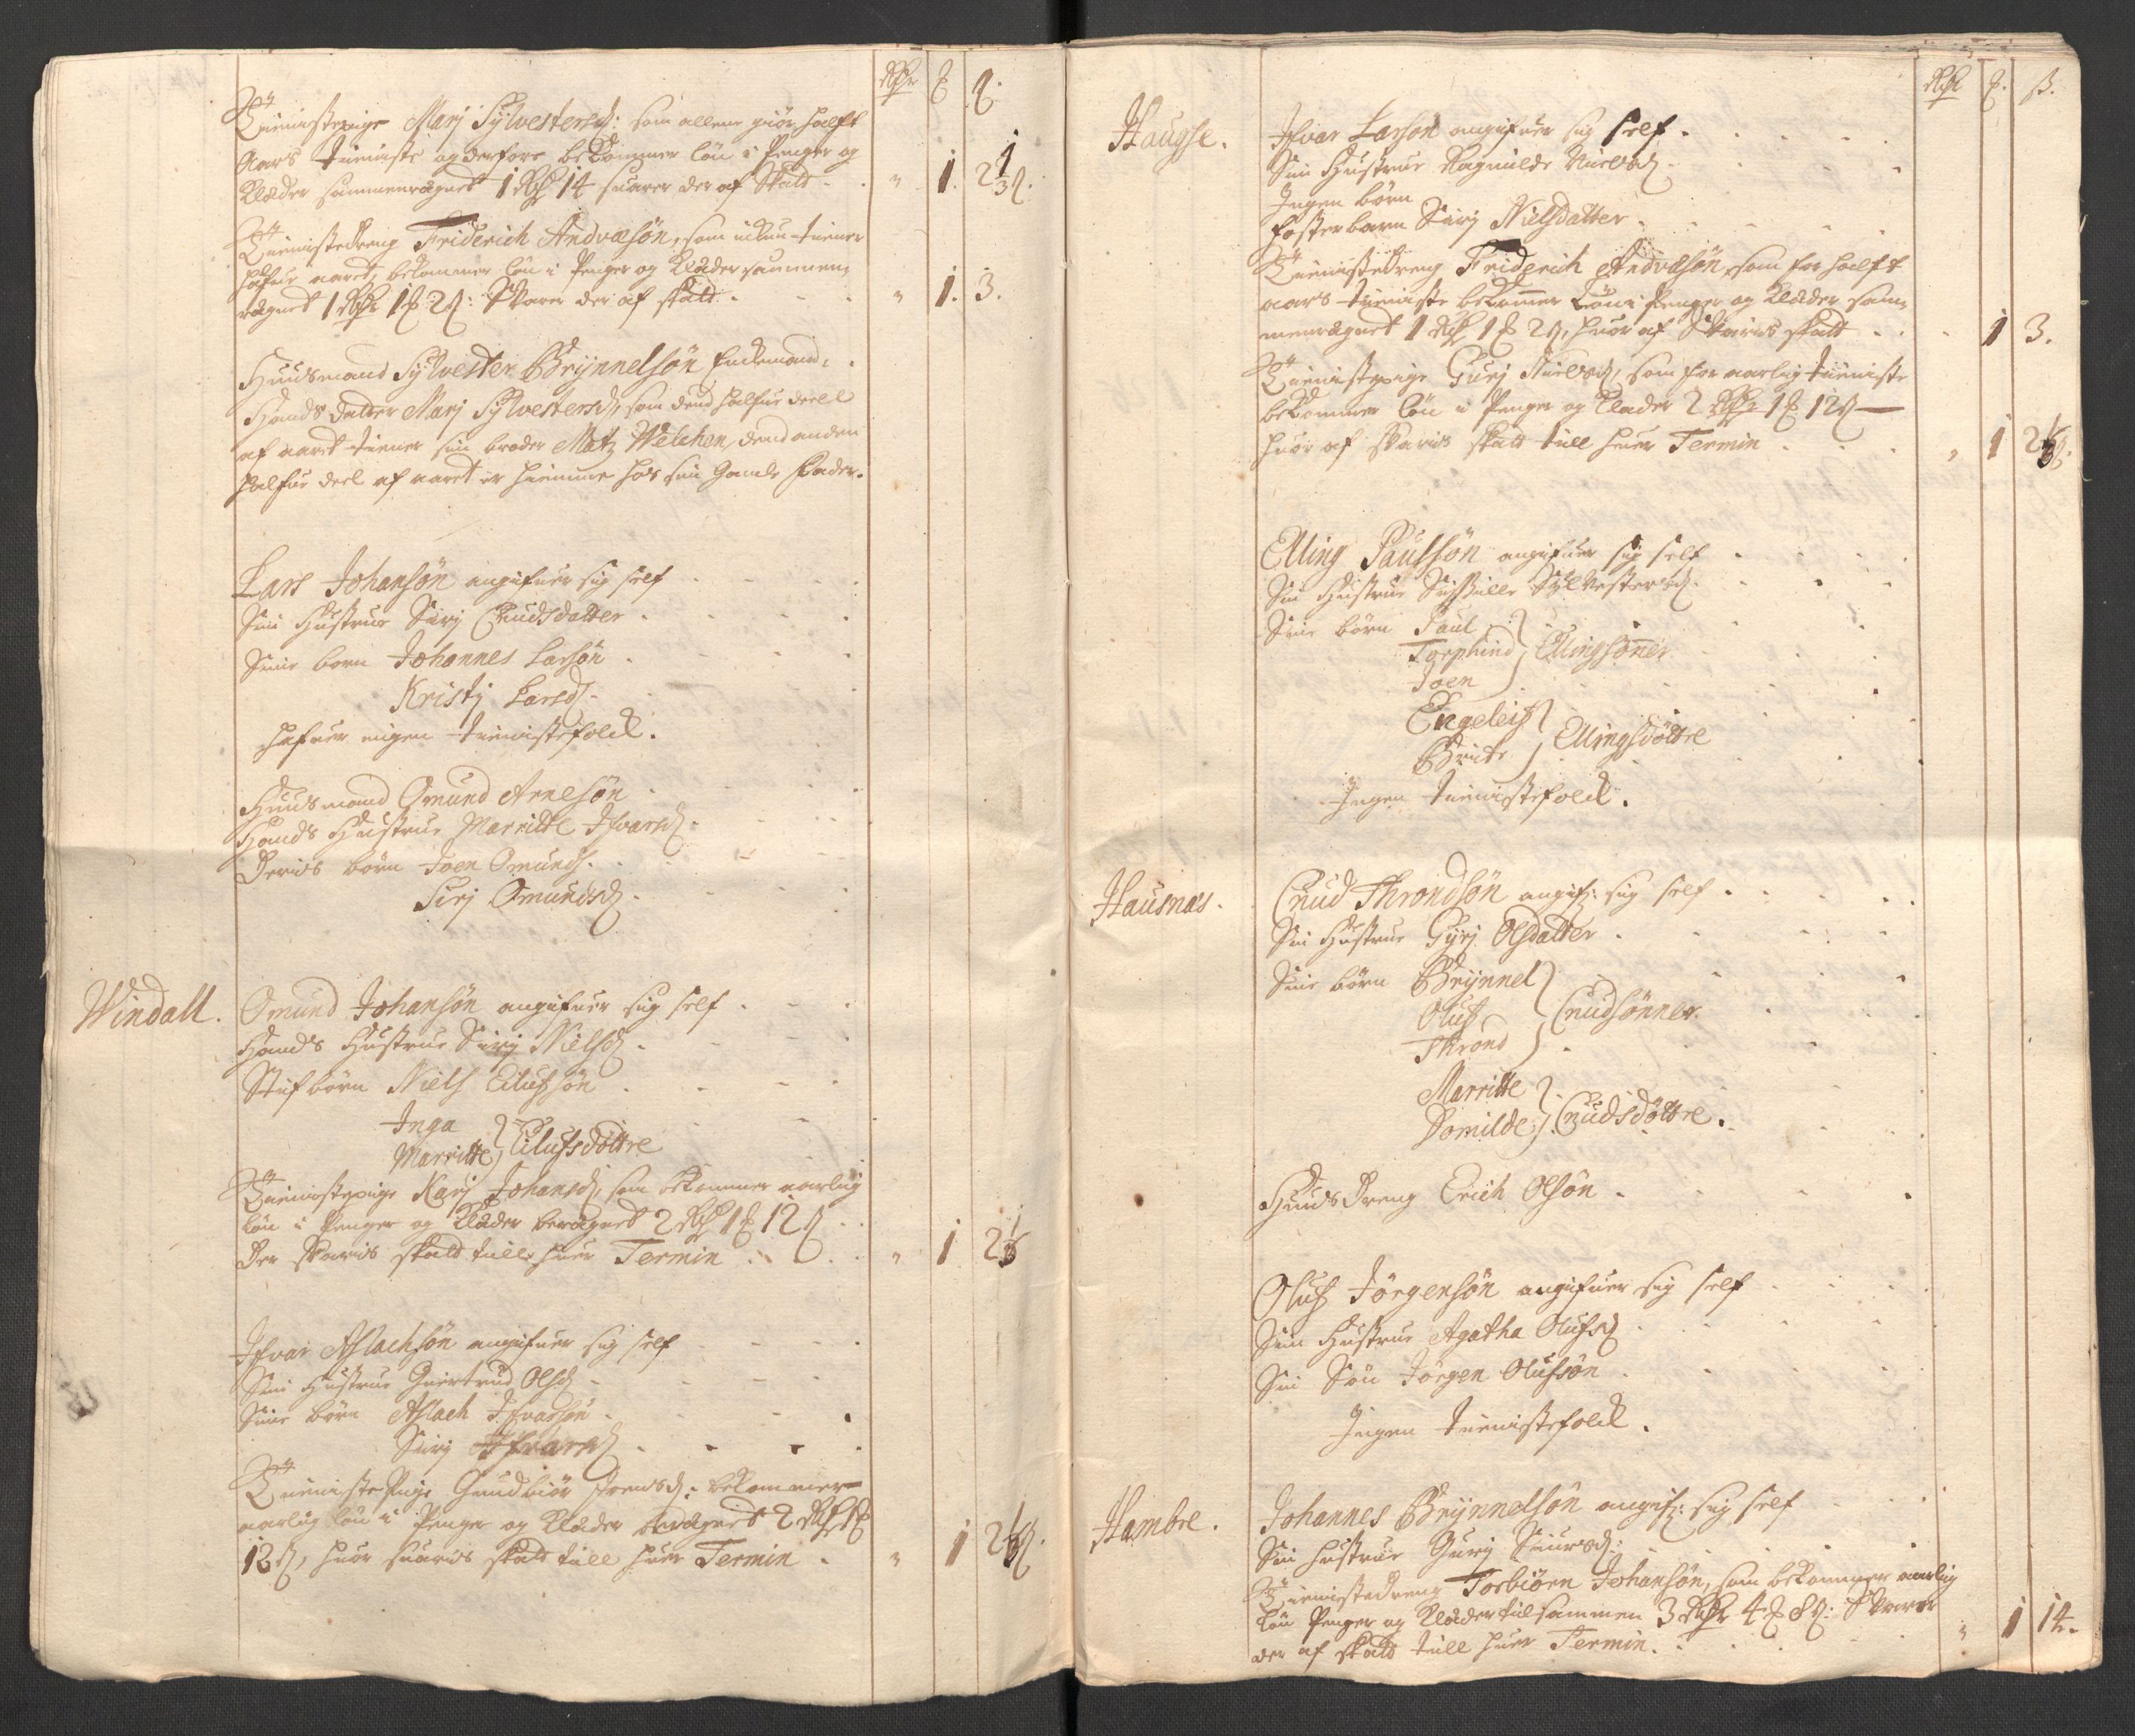 Rdr ℔ ß.
Tienistepige Marj Sylvestersd: som allene giør halft
Aars tieniste og derfore bekommer løn i Penger og
Klæder sammenregnet 1 Rdr 14 suarer der af Skatt - " 1. 2 1/3 ß.
Tienistedreng Friderich Andvæsøn, som ickun tiener
halfue aaret, bekommer løn i Penger og Klæder sammen
regnet 1 Rdr 1 ℔ 2 ß: Skarer der af skatt - " 1. 3.
Huusmand Sylvester Brynnelsøn Enckemand,
Hands datter Marj Sylvestersd, som dend halfue deell
af aaret tiener sin broder Matz Welchen, dend anden
halfue deel af aaret er hiemme hos sin Gamle Fader.
Lars Johansøn angifuer sig self
Sin Hustrue Sirj Cnudsdatter
Sine born Johannes Larsøn
Kristj Larsd
hafuer ingen tienistefolck.
Huusmand Omund Arnesøn
Hands Hustrue Marritte Ifvarsd
Deris børn Joen Omunds.
Sirj Omundsd
Windall. Omund Johansøn angifuer sig self
Hands Hustrue Sirj Nielsd
Stifbørn Niels Eilufsøn
Inga
Marritte } Eilufsdøttre
Tienistepige Karj Johansd, som bekommer aarlig
løn i Penger og Klæder beregnet 2 Rdr 1 ℔ 12 ß
Der Skaris skatt till huer Termin " 1 2 1/3
Ifvar Aslachsøn angifuer sig self
Sin Hustrue Giertrud Olsd
Sine børn Aslach Ifvarsøn
Sirj Ifvarsd
Tieniste Pige Gundbiør Joensd: bekommer
aarlig løn i Penger og Klæder beregnet 2 Rdr 1 ℔
12 ß, huor suaris skatt till huer Termin " 1 2 1/3 ß.
Rdr ℔. ß.
Haugse. Ifvar Larsøn angifuer sig self.
Sin Hustrue Ragnilde Nielsd
Ingen børn
fosterbarn Sirj Nielsdatter
Tienistedreng Friderich Andvæsøn, som for halft
aars tieniste bekommer Løn i Penger og Klæder sam,
menregnet 1 Rdr 1 ℔ 2 ß, huor af Skaris skatt 1 3.
Tienistepige Gurj Nielsd, som for aarlig tieniste
bekommer løn i Penger og Klæder 2 Rdr 1 ℔ 12 ß
huor af skaris skatt till huer Termin " 1 2 1/3 ß.
Elling Paulsøn angifuer sig self
Sin Hustrue Sissille Sylvestersd
Sine børn Paul
Torphind } Ellingsønner
Joen
Engeleis
Britte } Ellingsdøttre
Ingen tienistefolck.
Hausnæs. Cnud Throndsøn angif: sig self
Sin Hustrue Gyrj Olsdatter
Sine børn Brynnel
Oluf } Cnudsønner.
Thrond
Marritte
Domilde } Cnudsdøttre.
HuusDreng Erich Olsøn
Oluf Jørgensøn angifuer sig self
Sin Hustrue Agatha Olufsd
Sin Søn Jørgen Olufsøn
Ingen tienistefolck.
Hambre. Johannes Brynnelsøn angif: sig self
Sin hustrue Gurj Siursd:
Tienistedreng Torbiørn Johansøn, som bekommer aarlig
Løn Penger og Klæder tilsammen 3 Rdr 4 ℔ 8 ß: Skarer
der af skatt till huer Termin. " 1 14.